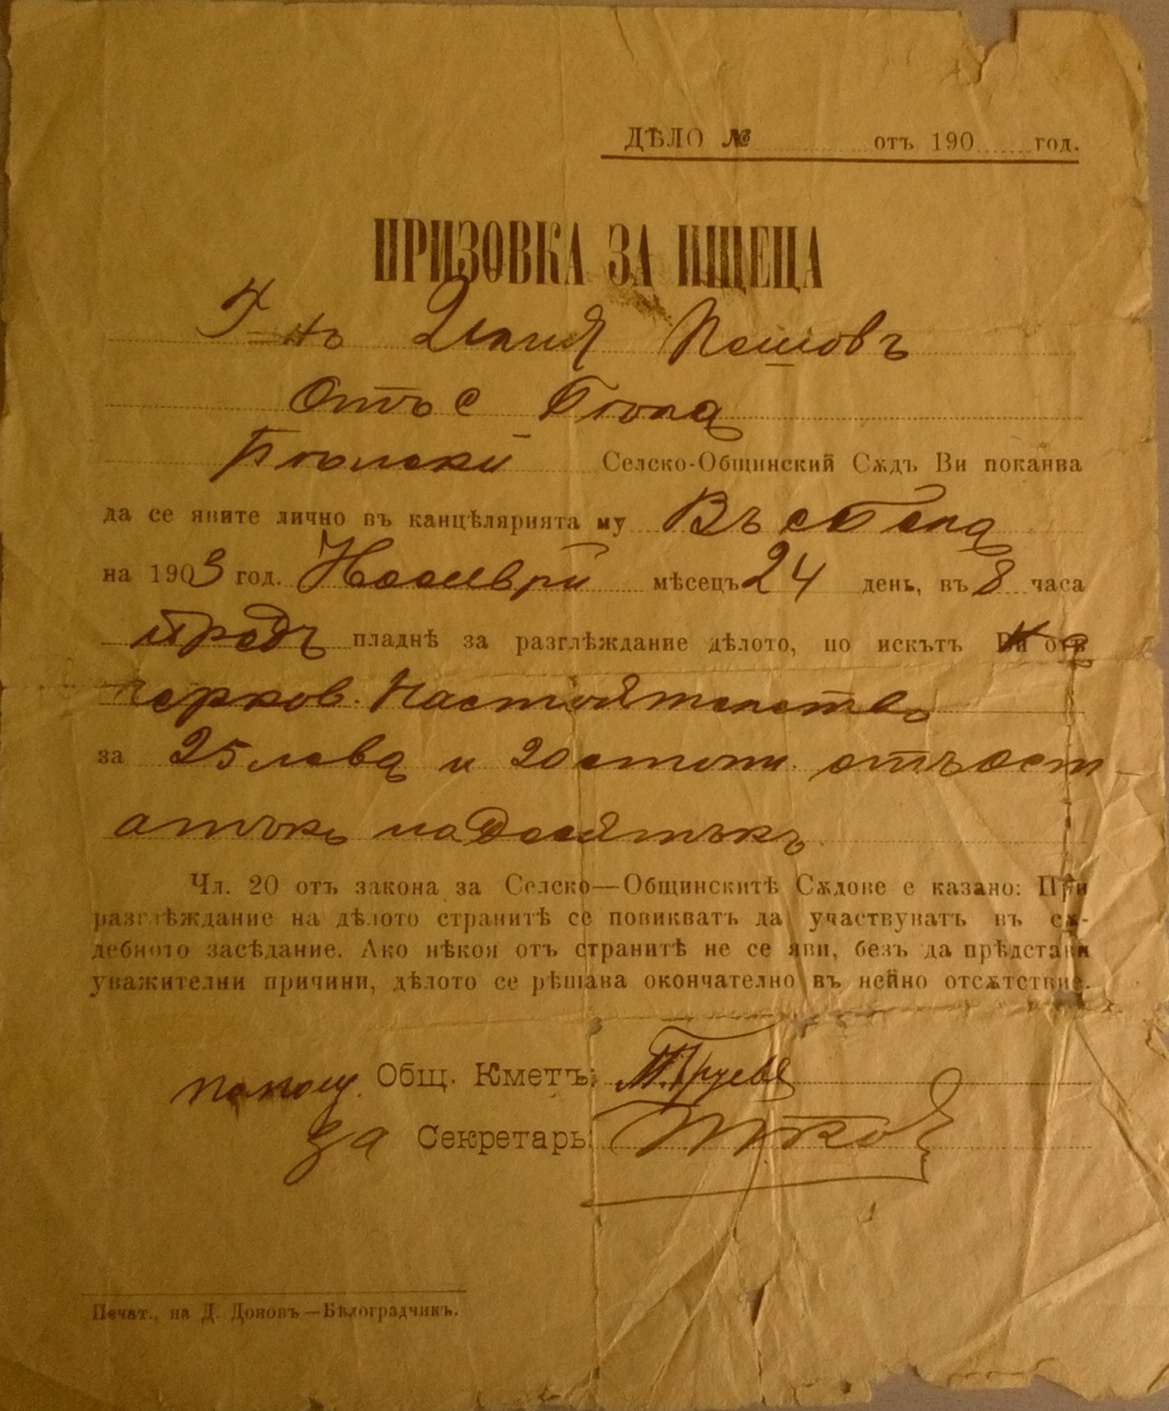 ДѢЛО № отъ 190 год.
ПРИЗОВКА ЗА ИЩЕЦА
Г-нъ Илия Пешовъ
Отъ с
Селско-Общинский Сѫдъ Ви поканва
да се явите лично въ канцѣлярията му Въ с
на 1903 год. Ноемврй мѣсецъ 24 день, въ 8 часа
предъ пладнѣ за разглѣждание дѣлото, по искътъ Ви отъ
черков. Настоятелство
за 25 лева и 20 стоти. отъ ост
атък на Десятъкъ
Чл. 20 отъ закона за Селско—Общинскитѣ Сѫдове е казано: При
разглѣждание на дѣлото странитѣ се повикватъ да участвуватъ въ сѫ-
дебното засѣдание. Ако нѣкоя отъ странитѣ не се яви, безъ да прѣдстави
уважителни причини, дѣлото се рѣшава окончателно въ нейно отсѫтствие.
помощ. Общ. Кметъ:
за Секретарь:
Печат., на Д. Доновъ—Бѣлоградчикъ.